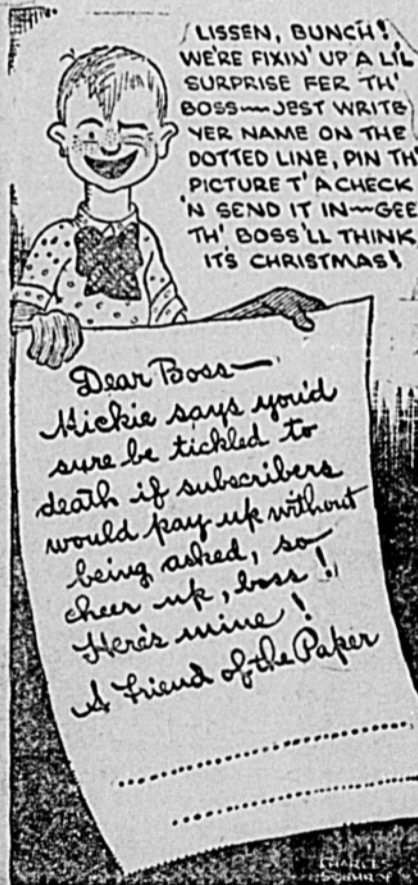 LISSEN, BUNCH!
WE'RE FIXIN' UP A LIL
SURPRISE FER TH'
BOSS—JEST WRITE
YER NAME ON THE
DOTTED LINE, PIN TH'
PICTURE T' A CHECK
'N SEND IT IN—GEE
TH' BOSS'LL THINK
ITS CHRISTMAS!
Dear Boss—
Mickie says you'd
sure be tickled to
death if subscribers
would pay up without
being asked, so
cheer up, boss!
Here's mine!
A Friend of the Paper
CHARLES